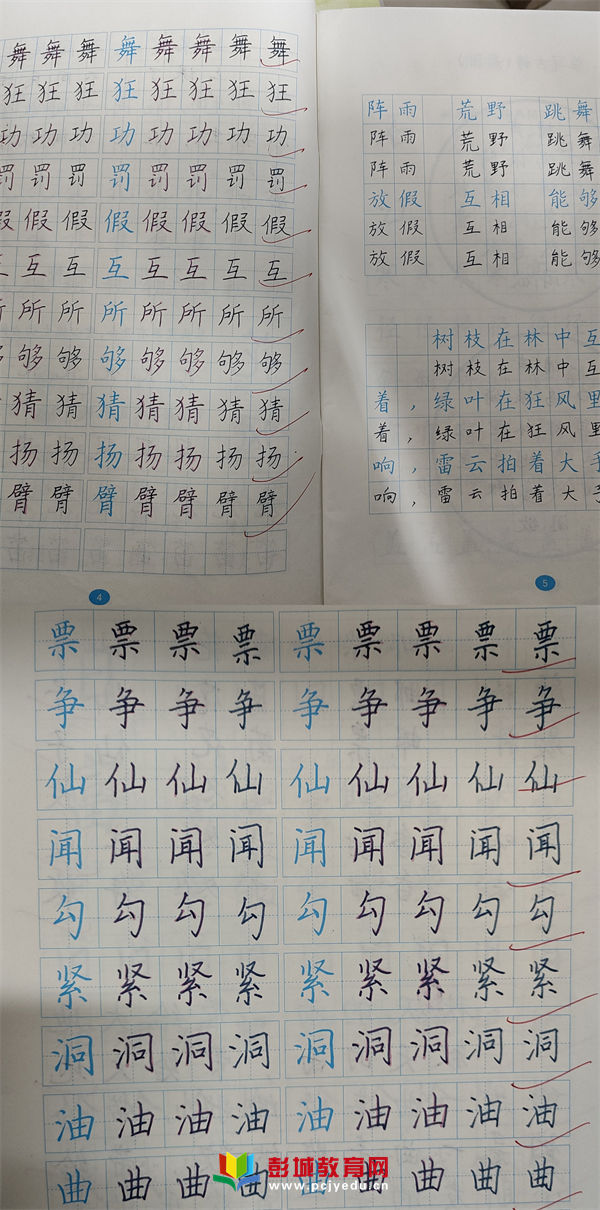 舞 舞 舞 舞 舞 舞 舞 舞
狂 狂 狂 狂 狂 狂 狂 狂
功 功 功 功 功 功 功 功
罚 罚 罚 罚 罚 罚 罚 罚
假 假 假 假 假 假 假 假
互 互 互 互 互 互 互 互
所 所 所 所 所 所 所 所
够 够 够 够 够 够 够 够
猜 猜 猜 猜 猜 猜 猜
扬 扬 扬 扬 扬 扬 扬
臂 臂 臂 臂 臂 臂 臂
4
阵雨 荒野 跳舞
阵雨 荒野 跳舞
阵雨 荒野 跳舞
放假 互相 能够
放假 互相 能够
放假 互相 能够
树枝在林中互
树枝在林中互
着,绿叶在狂风里
着,绿叶在狂风里
响,雷云拍着大手
响,雷云拍着大手
5
票 票 票 票 票 票 票 票 票
争 争 争 争 争 争 争 争 争
仙 仙 仙 仙 仙 仙 仙 仙 仙
闻 闻 闻 闻 闻 闻 闻 闻 闻
勾 勾 勾 勾 勾 勾 勾 勾 勾
紧 紧 紧 紧 紧 紧 紧 紧 紧
洞 洞 洞 洞 洞 洞 洞 洞 洞
油 油 油 油 油 油 油 油 油
曲 曲 曲 曲 曲 曲 曲 曲 曲
彭城教育网
www.pcjyedu.cn